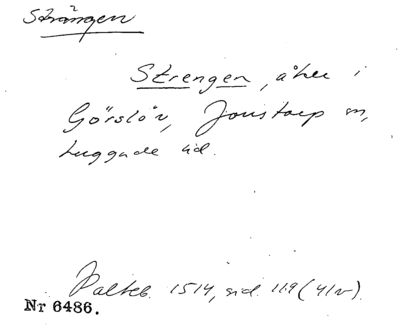 Strängen
Strengen, åker i
Görslöv, Jonstorp sn,
Luggude hd.
Palteb. 1514, sid. 119 (41v).
Nr 6486.